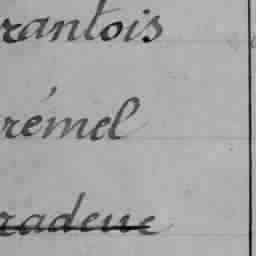 rantois
rémel
radeuc